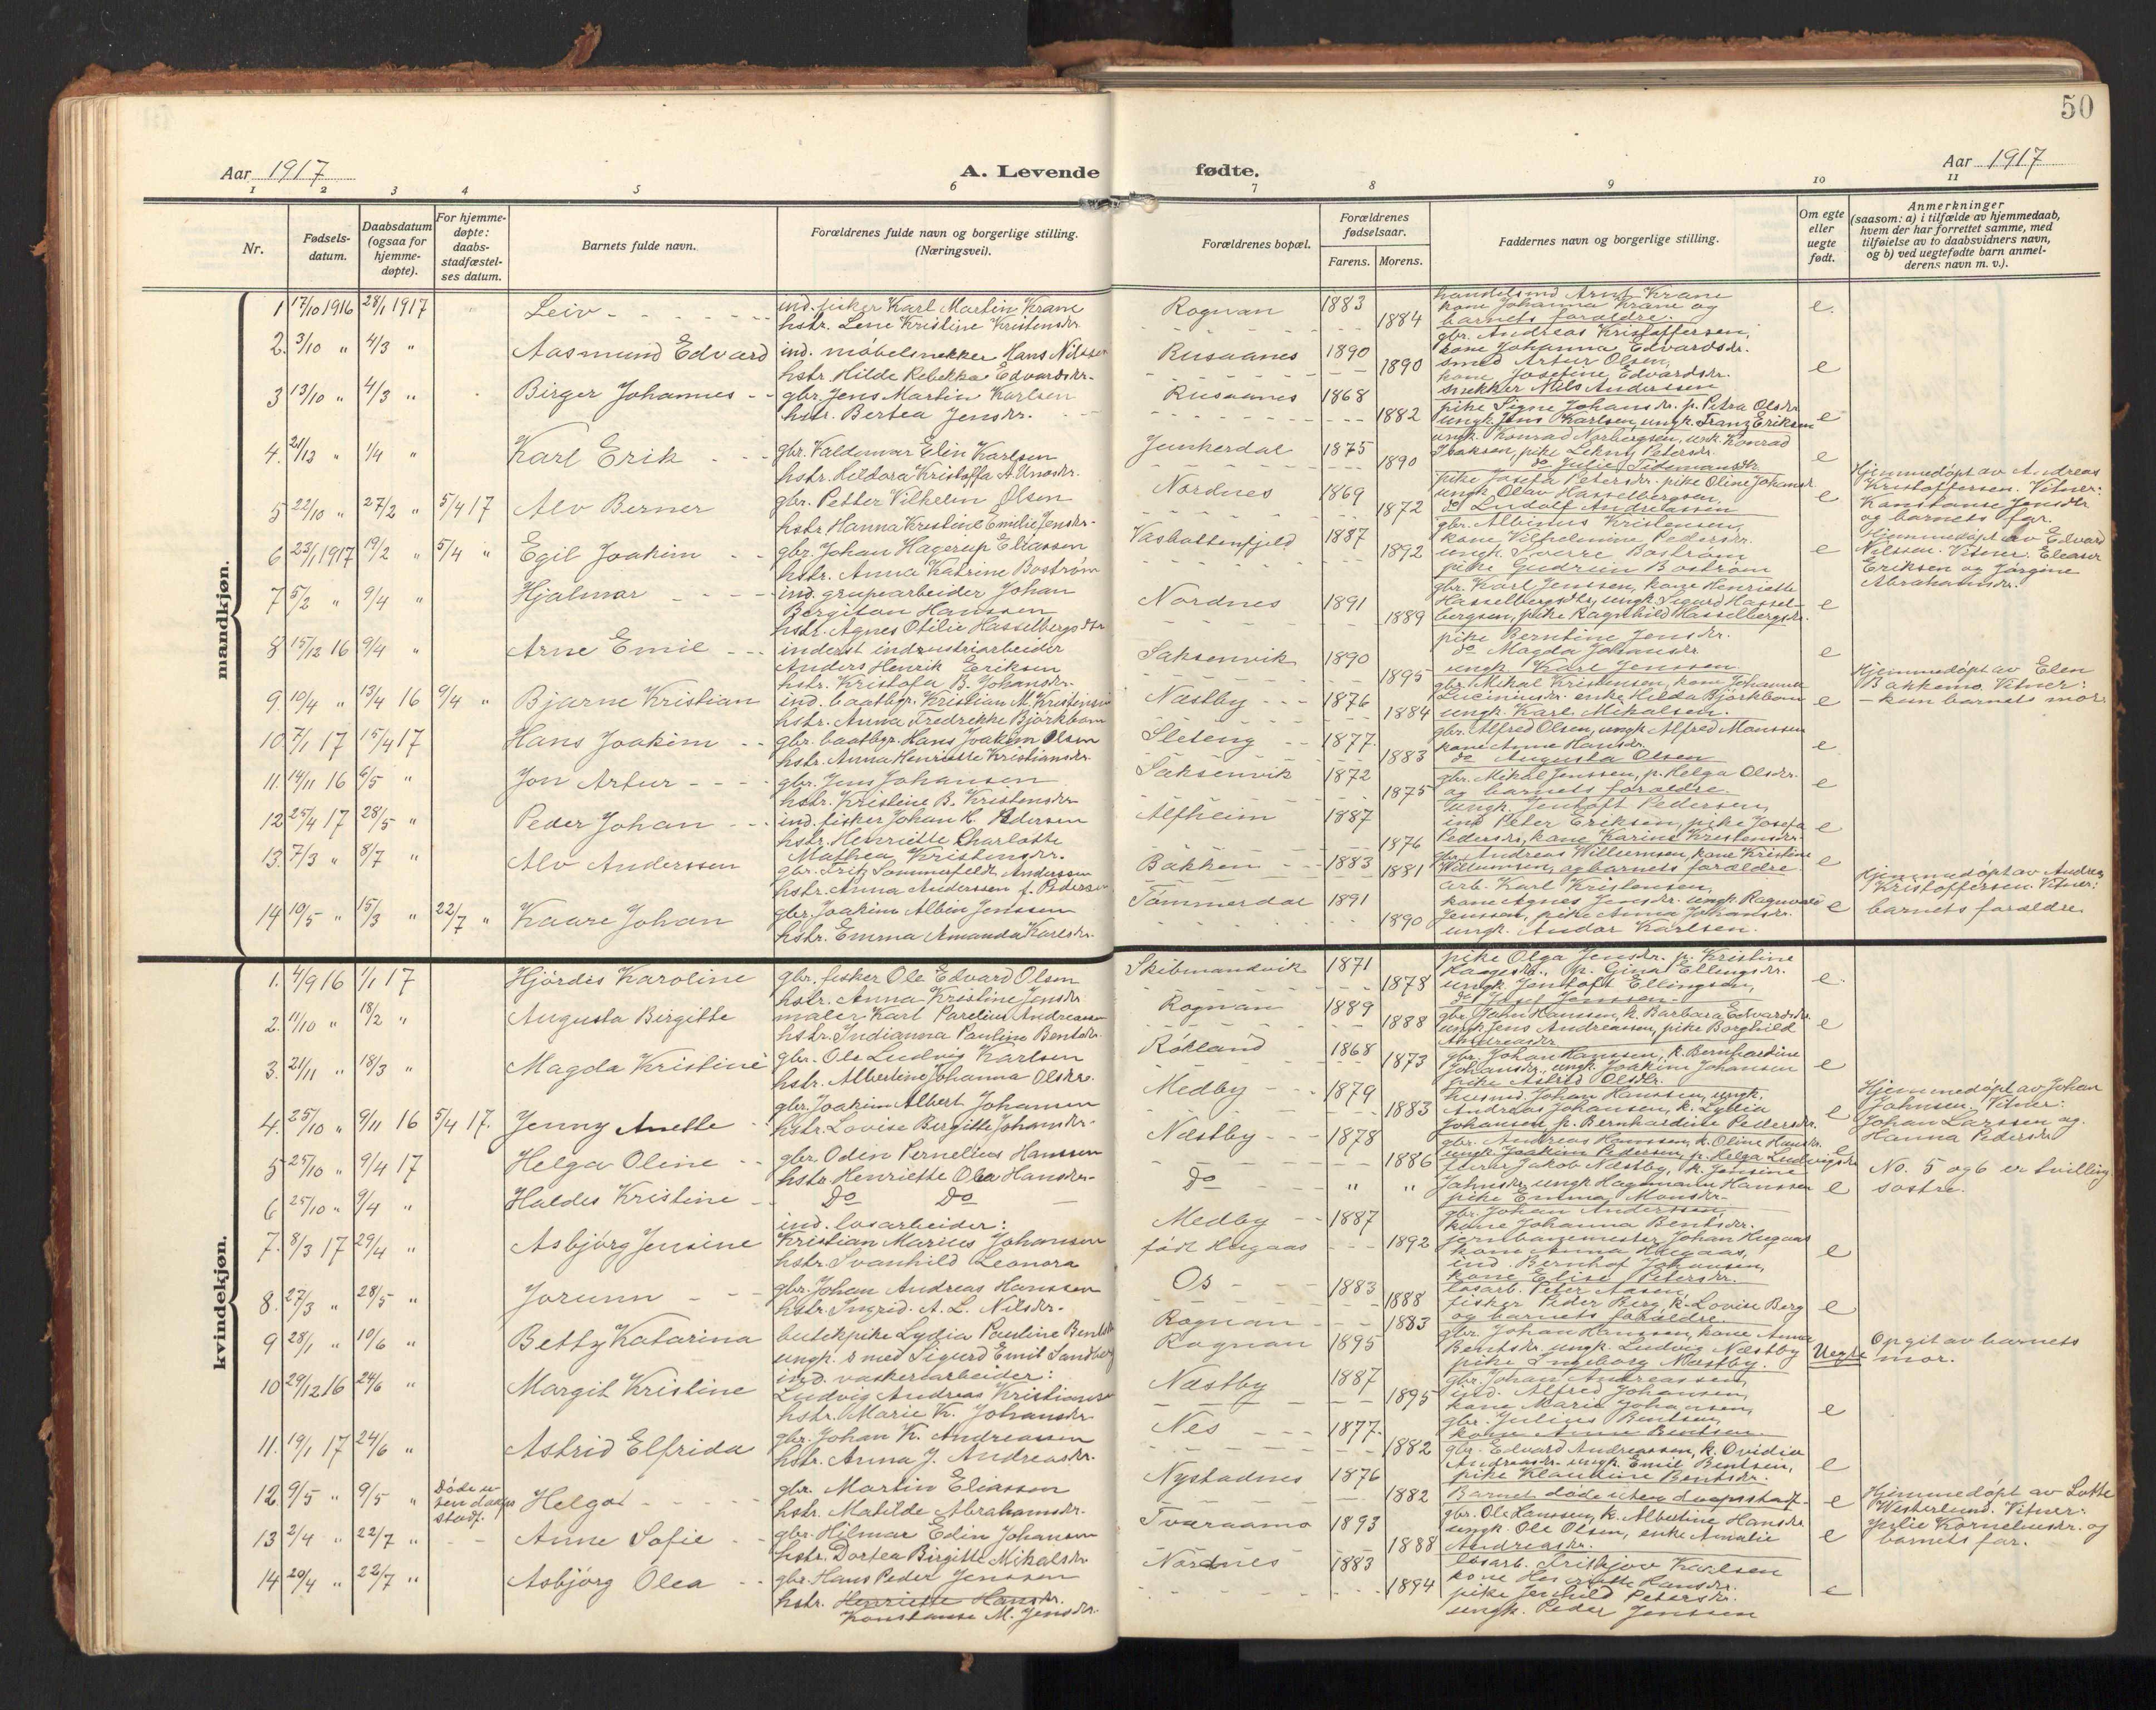 50
Aar 1917
A. Levende fødte.
Aar 1917
1 2 3 4 5 6 7 8 9 10 11
Nr.
Fødsels-
datum.
Daabsdatum
(ogsaa for
hjemme-
døpte).
For hjemme-
døpte:
daabs-
stadfæstel-
ses datum.
Barnets fulde navn.
Forældrenes fulde navn og borgerlige stilling.
(Næringsvei).
Forældrenes bopæl.
Forældrenes
fødselsaar.
Farens. Morens.
Faddernes navn og borgerlige stilling.
Om egte
eller
uegte
født.
Anmerkninger
(saasom: a) i tilfælde av hjemmedaab,
hvem der har forrettet samme, med
tilføielse av to daabsvidners navn,
og b) ved uegtefødte barn anmel-
derens navn m. v.).
mandkjøn.
1 17/10 1916 28/1 1917 Leiv ind. fisker Karl Martin Krane Rognan 1883 e.
hstr. Lene Kristine Kristensdr. 1884
handelsmd Arnt Krane
kone Johanna Krane og
barnets forældre.
2. 3/10 " 4/3 " Aasmund Edvard ind. møbelsnekker Hans Nilssen Rusaanes 1890 e
hstr. Hilde Rebekka Edvardsdr. 1890
gbr. Andreas Kristoffersen,
kone Johanna Edvardsdr.
smed Artur Olsen,
kone Josefine Edvardsdr.
3 13/10 " 4/3 " Birger Johannes gbr. Jens Martin Karlsen Rusaanes 1868 e
hstr. Bertea Jensdr. 1882
snekker Nils Anderssen
pike Signe Johansdr. p. Petra Olsdr.
ungk. Jens Karlsen, ungk. Franz Eriksen
4. 21/12 " 1/4 " Karl Erik gbr. Valdemar Elin Karlsen Junkerdal 1875 e
hstr. Heldora Kristoffa A. Unosdr. 1890
ungk. Konrad Norbergsen, ungk. Konrad
Isaksen, pike Lekny Petersdr.
do Julie Tidemansdtr.
5 22/10 " 27/2 " 5/4 17 Alv Berner gbr. Petter Vilhelm Olsen Nordnes 1869 e
hstr. Hanna Kristine Emilie Jensdr. 1872
pike Josefa Petersdr. pike Oline Johansd
ungk. Olav Hasselbergsen.
do Ludolf Andreassen
Hjemmedøpt av Andreas
Kristoffersen. Vitner:
Konstanse Jensdtr.
og barnets far.
6 23/1 1917 19/2 " 5/4 " Egil Joakim gbr. Johan Hagerup Eliassen Vasbottenfjeld 1887 e
hstr. Anna Katrine Boström 1892
gbr. Albinus Kristensen,
kone Vilhelmine Pedersdr.
ungk. Sverre Boström
pike Gudrun Boström
Hjemmedøpt av Edvard
Nilssen. Vitner: Eleaser
Eriksen og Jørgine
Abrahamsdr.
7 5/2 " 9/4 " Hjalmar ind. grupearbeider Johan Nordnes 1891 e
Bergiton Hanssen
hstr. Agnes Otilie Hasselbergsdtr 1889
gbr. Karl Jenssen, kone Henriette
Hasselbergsdtr, ungk. Sigurd Hassel-
bergsen, pike Ragnhild Hasselbergsdr.
8 15/12 16 9/4 " Arne Emil inderst industriarbeider Saksenvik 1890 e
Anders Henrik Eriksen
hstr. Kristofa B. Johansdr. 1895
pike Berntine Jensdr.
do Magda Johansdr
ungk. Karl Jenssen.
9. 10/4 " 13/4 16 9/4 " Bjarne Kristian ind. baatbgr. Kristian M. Kristensen Næstby 1876 e
hstr. Anna Fredrekke Björkbom 1884
gbr. Mikal Kristensen, kone Johanna
Lucinusdr. enke Hilda Björkbom
ungk. Karl Mikalsen.
Hjemmedøpt av Elen
Bakkemo. Vitner:
- kun barnets mor.
10. 7/1 17 15/4 17 Hans Joakim gbr. baatbgr. Hans Joakim Olsen Sleteng 1877. e
hstr. Anna Henriette Kristiansdr. 1883
gbr. Alfred Olsen, ungk. Alfred Monssen
kone Anne Hansdr.
do Augusta Olsen
11. 14/11 16 6/5 " Jon Artur gbr. Jens Johansen Saksenvik 1872 e
hstr. Kristine B. Kristensdr 1875
gbr. Mikal Jenssen, p. Helga Olsdr.
og barnets forældre.
12 25/4 17 28/5 " Peder Johan ind. fisker Johan H. Pedersen Alfheim 1887 e
hstr. Henriette Charlotte
Mathea Kristensdr. 1876
ungk. Jentoft Pedersen,
ind Peter Eriksen, pike Josefa
Pedersdr., kone Karine Kristensdr.
13. 7/3 " 8/7 " Alv Anderssen gbr. Fritz Sommerfeldt Anderssen Bakken 1883 e
hstr. Anna Anderssen f. Pedersen 1881
gbr. Andreas Willumsen, kone Kristine
Willumsen, og barnets forældre
14 10/5 " 15/3 " 22/7 " Kaare Johan gbr. Joakim Albin Jenssen Tömmerdal 1891 e
hstr. Emma Amanda Karlsdr. 1890
arb. Karl Kristensen,
kone Agnes Jensdr. ungk. Ragnvald
Jenssen, pike Anna Johansdr.
ungk. Andor Karlsen.
Hjemmedøpt av Andreas
Kristoffersen. Vitner:
barnets forældre.
kvindekjøn.
1. 4/9 16 1/1 17 Hjördis Karoline gbr. fisker Ole Edvard Olsen Skibmandvik 1871 e.
hstr. Anna Kristine Jensdr 1878
pike Olga Jensdr. p. Kristine
Haagesdr., p. Gina Ellingsdr.
ungk. Jentoft Ellingsen,
do Josef Jenssen.
2. 11/10 " 18/2 " Augusta Birgitte maler Karl Parelius Andreassen Rognan 1889 e
hstr. Indianna Pauline Bentsdr. 1888
gbr. John Hanssen, k. Barbara Edvardsdr.
ungk. Jens Andreassen, pike Borghild
Andreasdr
3. 21/11 " 18/3 " Magda Kristine gbr. Ole Ludvig Karlsen Rökland 1868 e
hstr. Albertine Johanna Olsdr. 1873
gbr. Johan Hanssen, k. Bernhardine
Johansdr., ungk. Joakim Johansen
pike Astrid Olsdtr.
4. 25/10 " 9/11 16 5/4 17. Jenny Anette gbr. Joakim Albert Johansen Medby 1879 e
hstr. Lovise Bergitte Johansdr. 1883
husmd. Johan Hanssen, ungk.
Andreas Johansen, k. Lydia
Johansen, p. Bernhardine Pedersdr.
Hjemmedøpt av Johan
Johnsen. Vitner:
Johan Larssen og
Hanna Pedersdr.
5 25/10 " 9/4 17 Helga Oline gbr. Odin Pernelius Hanssen Næstby 1878 e
hstr. Henriette Olea Hansdr. 1886
gbr. Andreas Hanssen, k. Oline Hansdr.
ungk. Joakim Pedersen, p. Helga Ludvigsdr
No. 5 og 6 er tvilling
søstre.
6 25/10 " 9/4 " Haldis Kristine Do Do Do " " e
furer Jakob Næstby, k. Jensine
Jahnsdr, ungk. Hagemann Hanssen
pike Emma Monsdr.
7. 8/3 17 29/4 " Asbjørg Jensine ind. løsarbeider: Medby 1887 e
Kristian Marius Johansen
hstr. Svanhild Leonora født Haugaas 1892
gbr. Johan Anderssen,
kone Johanna Bentsdr.
jernbanemester Johan Haugaas
kone Anna Haugaas,
8. 27/3 " 28/5 " Jorunn gbr. Johan Andreas Hanssen Os 1883 e
hstr. Ingrid A. L. Nilsdr. 1888
ind. Bernhof Johansen,
kone Elise Petersdr.
løsarb. Peter Aasen,
fisker Peder Berg, k. Lovise Berg
og barnets forældre.
9 28/1 " 10/6 " Betty Katarina butikpike Lydia Pauline Bentsdr Rognan 1883 Uegte
ungk. smed Sigurd Emil Sandberg Rognan 1895
gbr. Johan Hanssen, kone Anna
Bentsdr. ungk. Ludvig Næstby
pike Ingeborg Næstby.
Opgit av barnets
mor.
10 29/12 16 24/6 " Margit Kristine ind. vaskeriarbeider: Næstby 1887 e
Ludvig Andreas Kristiansen
hstr. Marie K. Johansdr 1895
gbr. Johan Andreassen,
ind. Alfred Johansen,
kone Marie Johansen,
11. 19/1 17 24/6 " Astrid Elfrida gbr. Johan K. Andreassen Nes 1877. e
hstr. Anna J. Andreasdr. 1882
gbr. Julius Bentsen,
kone Anne Bentsen.
gbr. Edvard Andreassen, k. Ovidia
Andreasdr. ungk. Emil Bentsen,
pike Klaudine Bentsdr.
12. 9/5 " 9/5 " Døde u-
ten daaps
stadf. Helga gbr. Martin Eliassen Nystadnes 1876 e
hstr. Matilde Abrahamsdr. 1882
Barnet døde uten daapsstadf.
Hjemmedøpt av Lotte
Westerlund. Vitner:
Julie Korneliusdr. og
barnets far.
13 2/4 " 22/7 " Anne Sofie gbr. Hilmar Edin Johansen Tveraamo 1893 e
hstr. Dortea Birgitte Mikalsdr. 1888
gbr. Ole Hanssen, k. Albertine Hansdr.
ungk. Ole Olsen, enke Amalie
Andreasdr.
14 20/4 " 22/7 " Asbjørg Olea gbr. Hans Peder Jenssen Nordnes 1883 e
hstr. Henriette Hansdr. 1894
Konstanse M. Jensdr.
løsarb. Fritkjov Karlsen
kone Henriette Hansdr.
pike Jenhild Petersdr.
ungk. Peder Jenssen